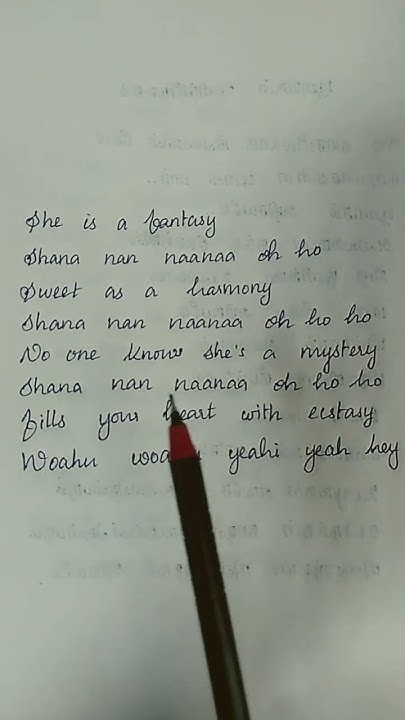 She is a fantasy
Shana nan naanaa oh ho
Sweet as a harmony
Shana nan naanaa oh ho ho
No one knows she's a mystery
Shana nan naanaa oh ho ho
fills your heart with ecstasy
Woahu yeahi yeah hey